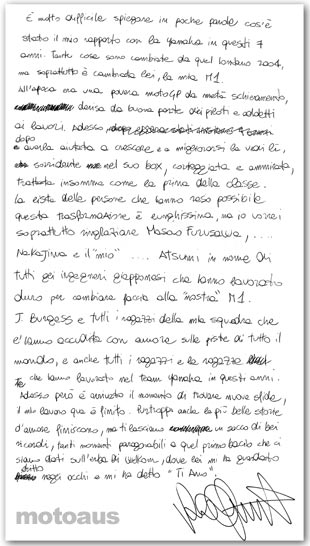 È molto difficile spiegare in poche parole cos'è
stato il mio rapporto con la Yamaha in questi 7
anni. Tante cose sono cambiate da quel lontano 2004,
ma soprattutto è cambiata lei, la mia M1.
All'epoca era una povera motoGP da metà schieramento,
derisa da buona parte dei piloti e addetti
ai lavori. Adesso
dopo
averla aiutata a crescere e a migliorarsi la vedi lì,
sorridente nel suo box, corteggiata e ammirata,
trattata insomma come la prima della classe.
La lista delle persone che hanno reso possibile
questa trasformazione è lunghissima, ma io vorrei
soprattutto ringraziare Masao Furusawa, ....
Nakajima e il "mio" .... Atsumi in nome di
tutti gli ingegneri giapponesi che hanno lavorato
duro per cambiare faccia alla "nostra" M1.
J. Burgess e tutti i ragazzi della mia squadra che
l'hanno accudita con amore sulle piste di tutto il
mondo, e anche tutti i ragazzi e le ragazze
che hanno lavorato nel team Yamaha in questi anni.
Adesso però è arrivato il momento di trovare nuove sfide,
il mio lavoro qua è finito. Purtroppo anche le più belle storie
d'amore finiscono, ma ti lasciano un sacco di bei
ricordi, tanti momenti paragonabili a quel primo bacio che ci
siamo dati sull'erba di Welkom, dove lei mi ha guardato
dritto
negli occhi e mi ha detto "Ti Amo".
motoaus